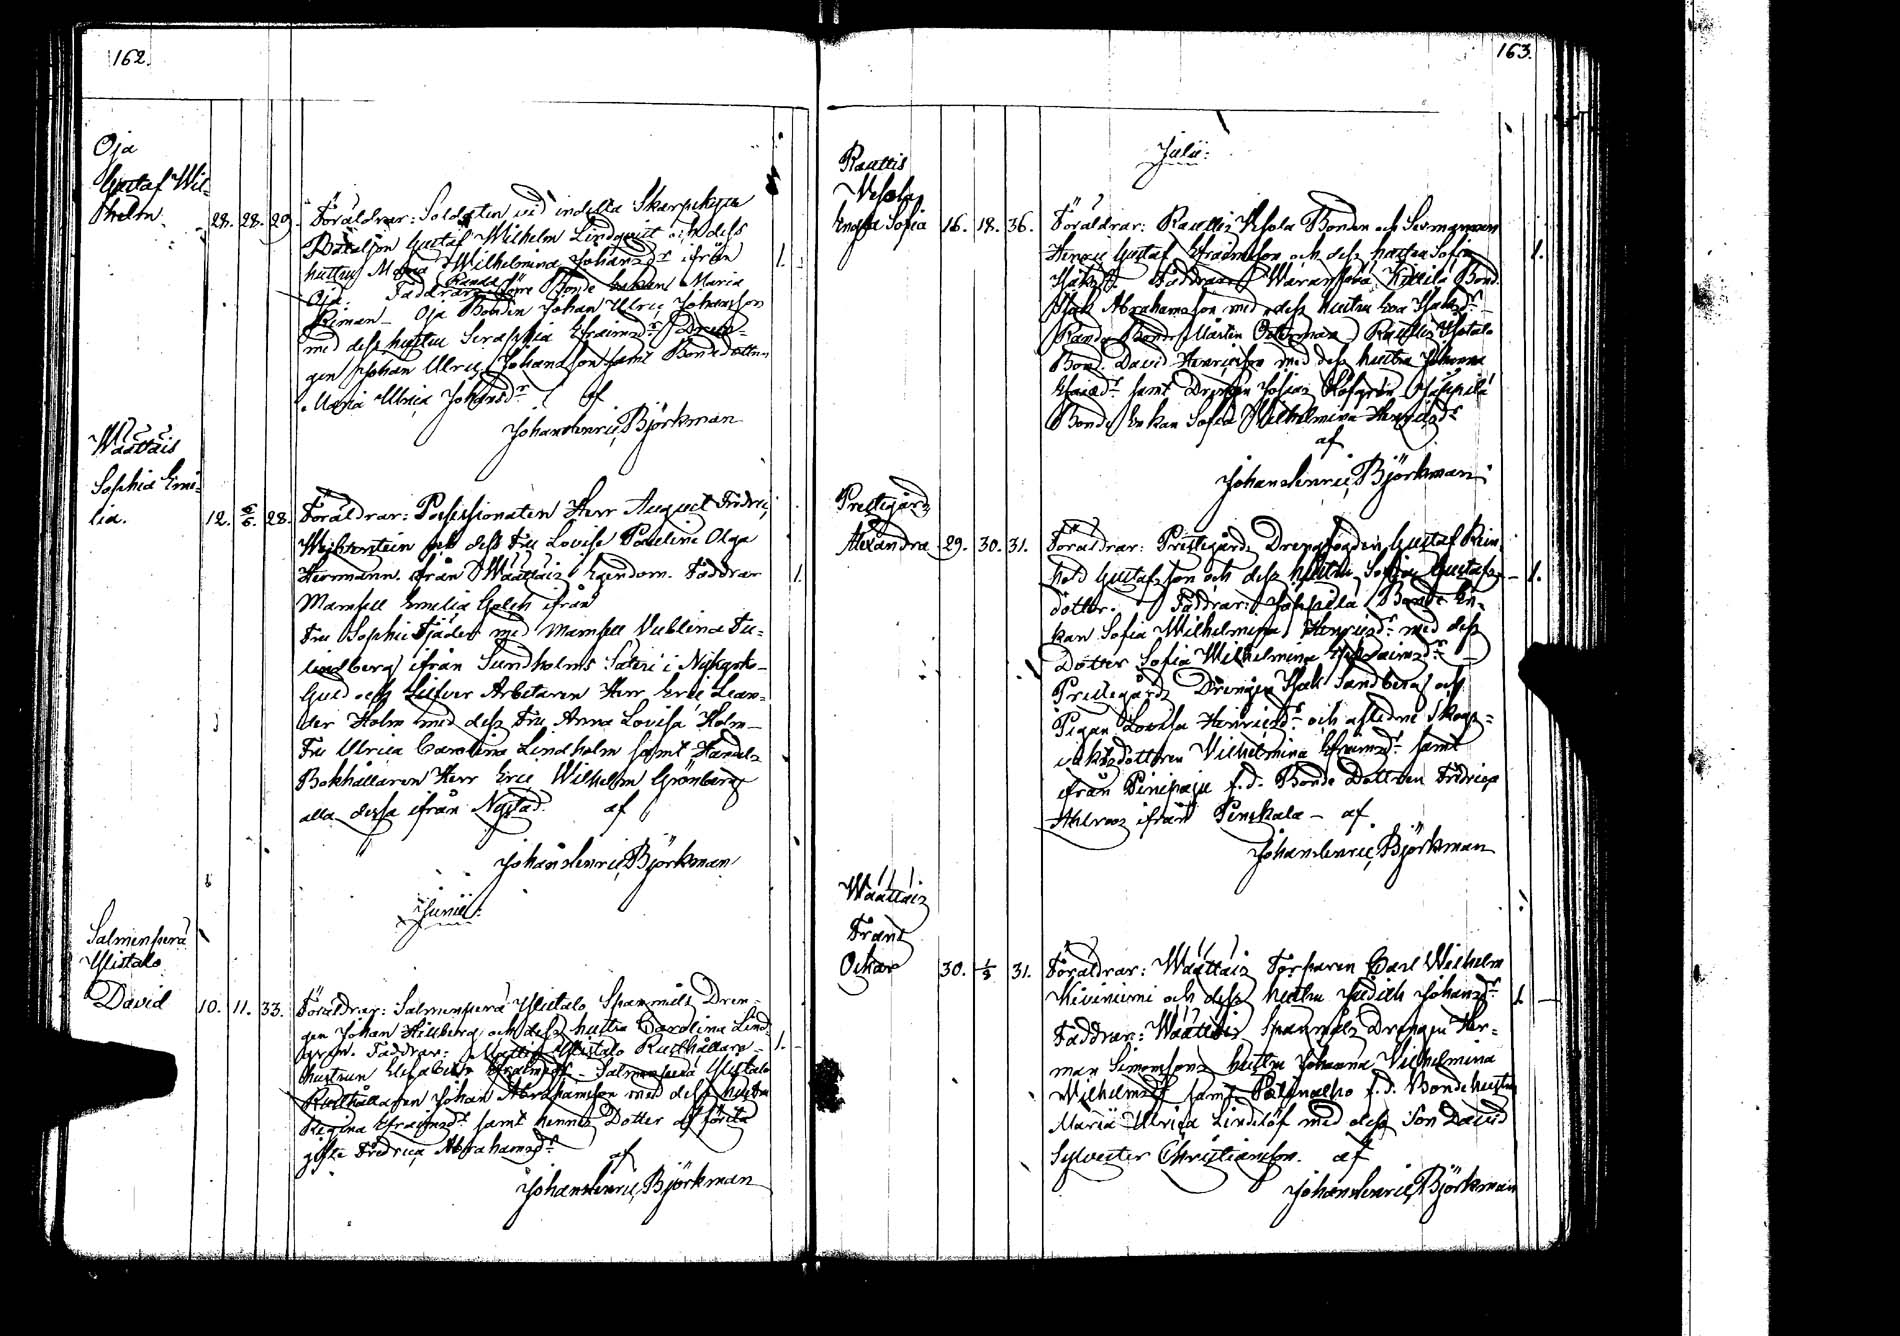 162.
Oja
Gustaf Wil=
helm. 28. 28. 29.
Föräldrar: Soldaten vid indelta Skarpskytte
Bataljon Gustaf Wilhelm Lindqvist och dess
hustru Maria Wilhelmina Johansdr ifrån
Oja. Faddrar: Bonde Enkan Maria
Riman – Oja Bonden Johan Ulric Johansson
med dess hustru Seraphia Efraimsdr Dren=
gen Johan Ulric Johansson samt Bondedottren
Maria Ulrica Johansdr af
Johan Henric Björkman
1.
Waattais
Sophia Emi=
lia. 12. 6/6. 28.
Föräldrar: Possessionaten Herr August Fredric
och dess Fru Lovise Pauline Olga
Herrmann ifrån Waattais Egendom. Faddrar
Mamsell Emelia Golch ifrån
Fru Sophie Tjäder med Mamsell Dublina Fu=
lindberg ifrån Sundholms Säteri i Nykyrko –
Guld och Silfver Arbetaren Herr Eric Lean=
der Holm med dess Fru Anna Lovisa Holm –
Fru Ulrica Carolina Lindholm samt Handels
Bokhållaren Herr Eric Wilhelm Grönberg
alla dessa ifrån Nystad. af
Johan Henric Björkman
1.
Junii:
Salmensuera
Ylistalo
David 10. 11. 33.
Föräldrar: Salmensuera Ylistalo Spanmåls Dren=
gen Johan Hillberg och dess hustru Carolina Lind=
gren. Faddrar: Mattis Ylistalo Rusthållare=
hustrun Elisabeth Efraimsdr – Salmensuera Ylistalo
Rusthållaren Johan Abrahamsson med dess hustru
Regina Efraimsdr samt hennes Dotter af förra
gifte Fredrica Abrahamsdr
af
Johan Henric Björkman
1.
163.
Julii:
Rauttis
Vesola
Engla Sofia 16. 18. 36.
Föräldrar: Rauttis Vesola Bonden och Sexmannen
Henric Gustaf Efraimsson och dess hustru Sofia
Isaksdr. Faddrar: Waranpää Kettila Bond.
Isak Abrahamsson med dess hustru Eva Isaksdr
Bonde Mårten Österman – Rauttis Ylistalo
Bond. David Henricsson med dess hustru Johanna
samt Drengen Josias Höfgrén – Jäppilä
Bonde Enkan Sofia Wilhelmina Henricsdr
af
Johan Henric Björkman
1.
Prestegård
Alexandra 29. 30. 31.
Föräldrar: Prestegårds Drengfogden Gustaf Rein=
hold Gustafsson och dess hustru Sofia Gustafs=
dotter. Faddrar: Jäppilä Bonde En=
kan Sofia Wilhelmina Henricsdr med dess
Dotter Sofia Wilhelmina Efraimsdr –
Prestegårds Drengen Isak Sandberg och
Pigan Lovisa Henricsdr och afledne Skogs=
vaktsdottren Wilhelmina Efraimsdr samt
ifrån Pinipaju f.d. Bonde Dottren Fredrica
Ahlroos ifrån Penskala – af
Johan Henric Björkman
1.
Waattais
Frans
Oskar 30. 1/8 31.
Föräldrar: Waattais Torparen Carl Wilhelm
Kiviniemi och dess hustru Judith Johansdr
Faddrar: Waattais Spanmåls Drengen Her=
man Simonsons hustru Johanna Wilhelmina
Wilhelmsdr samt Palinalho f.d. Bondehustru
Maria Ulrica Lindelöf med dess Son David
Sylvester Christiansson. af
Johan Henric Björkman
1.